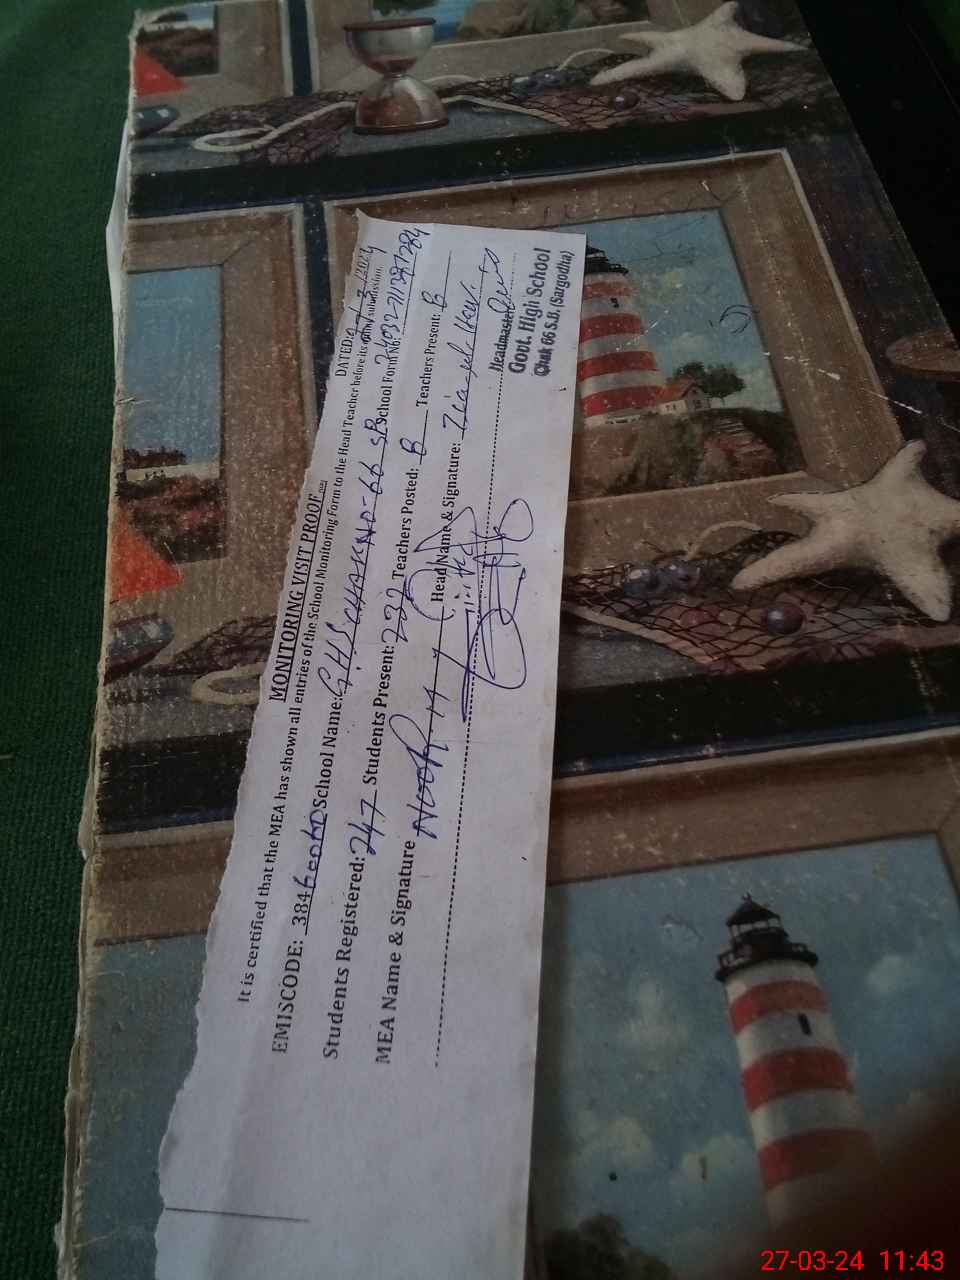 MONITORING VISIT PROOF
DATED: /3/2024
It is certified that the MEA has shown all entries of the School Monitoring Form to the Head Teacher before its submission.
EMISCODE: 384 School Name: GHS CHAK NO-66 SB School Form No:
Students Registered: 247 Students Present: 232 Teachers Posted: B Teachers Present: B
MEA Name & Signature NOOR M Head Name & Signature:
Headmaster
Govt. High School
Chak 66 S.B. (Sargodha)
27-03-24 11:43